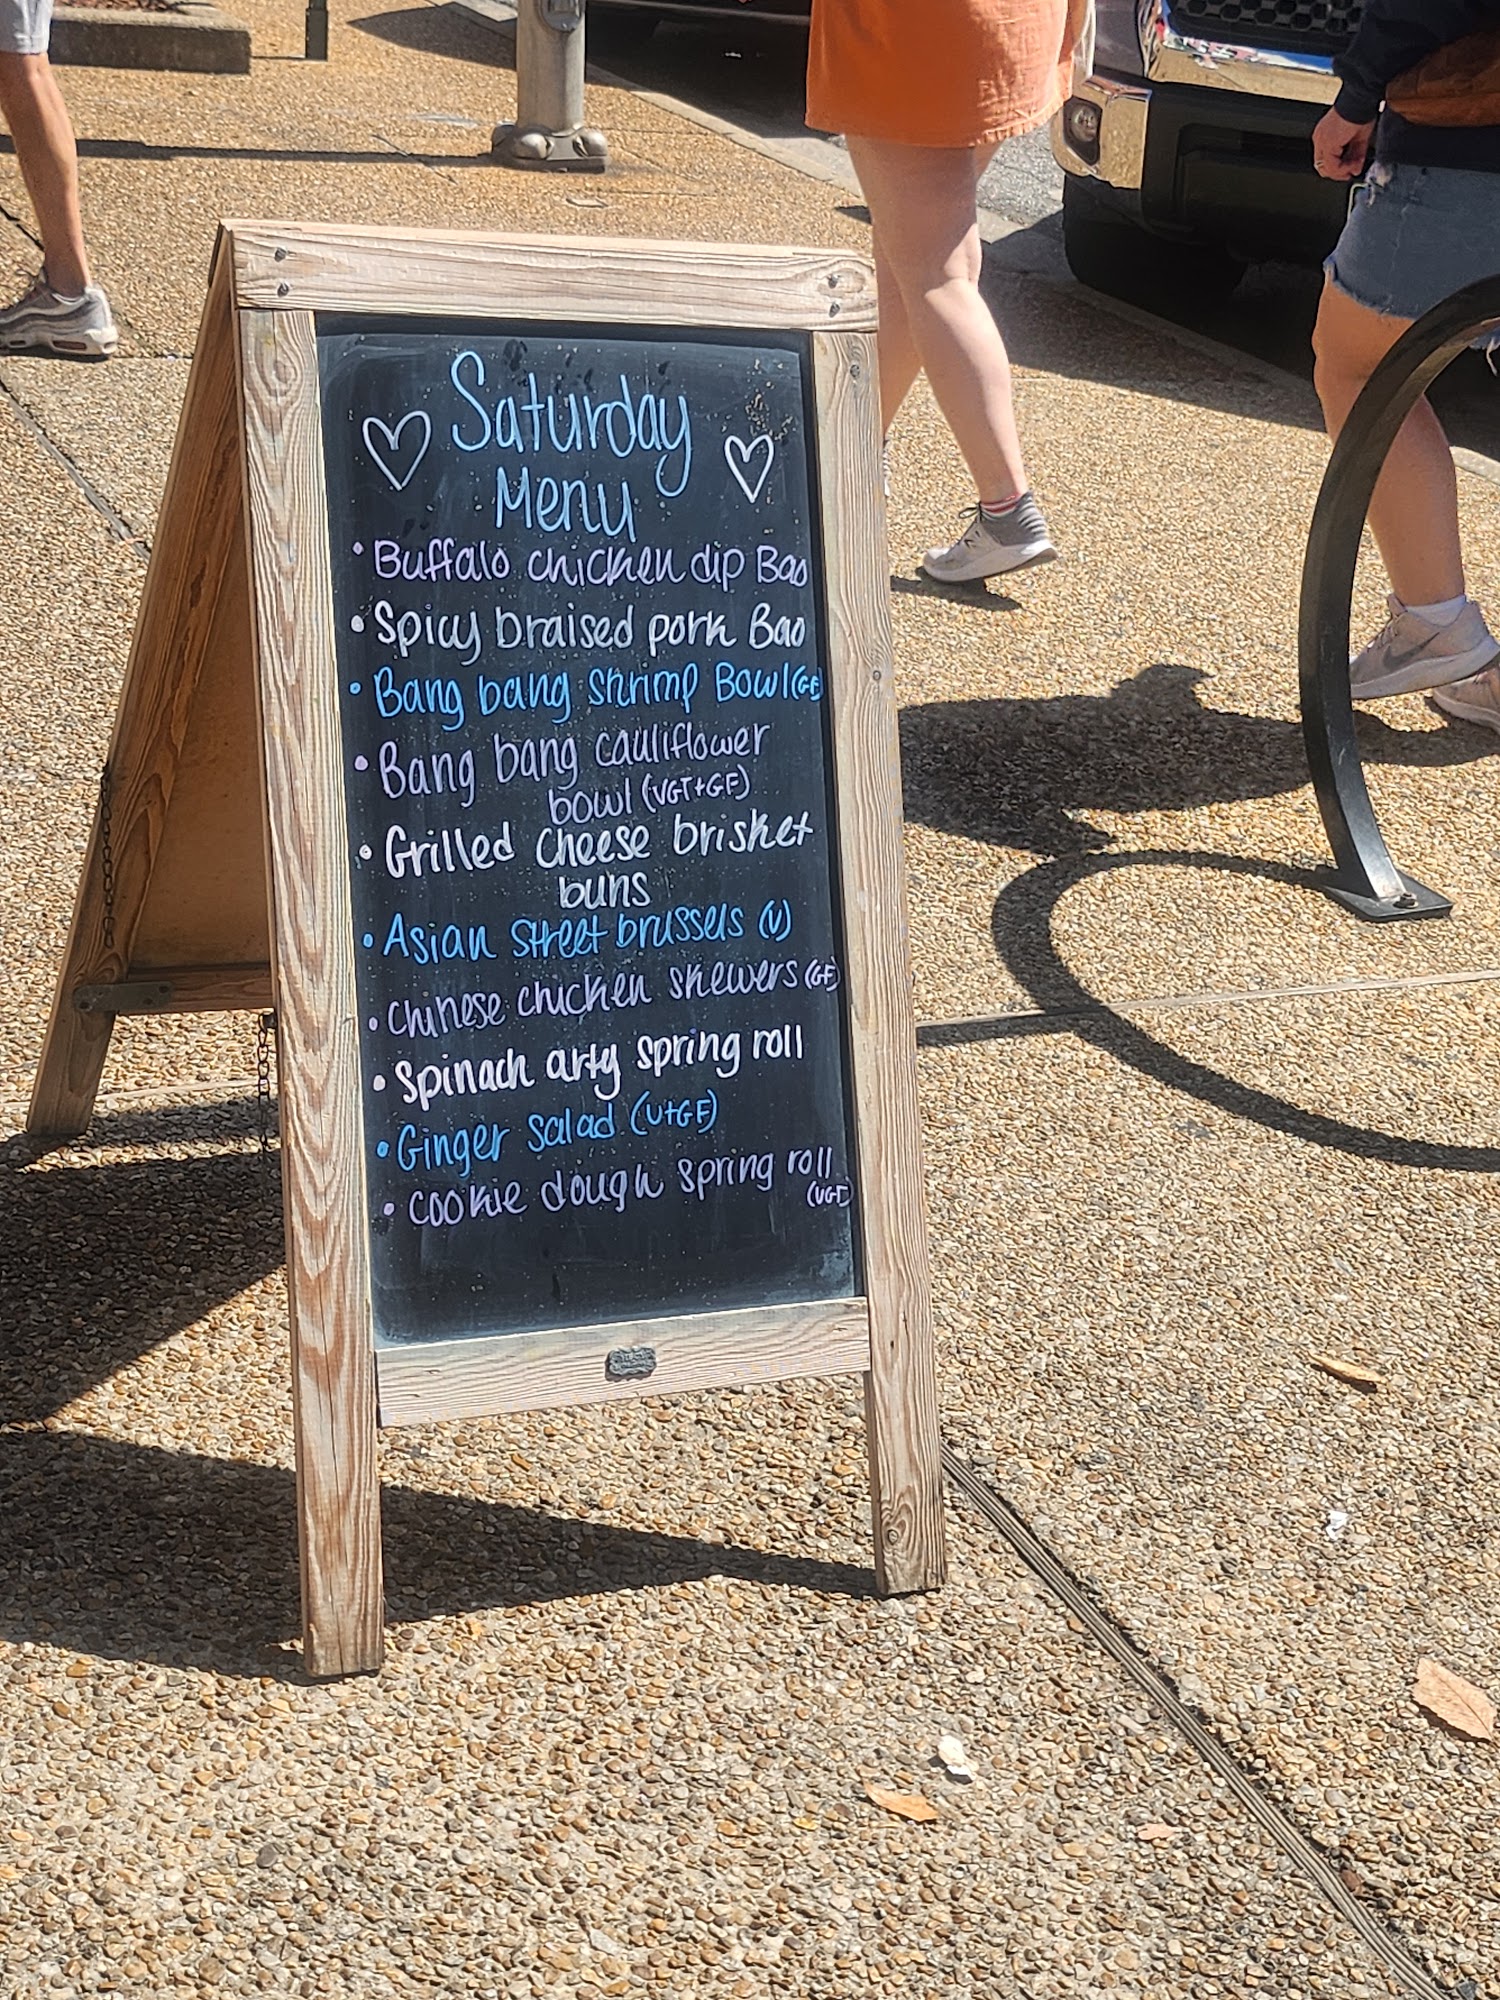 Saturday
Menu
• Buffalo chicken dip Bao
• Spicy braised pork Bao
• Bang bang shrimp Bowl (GF)
• Bang bang cauliflower
bowl (VGT+GF)
• Grilled cheese brisket
buns
• Asian street brussels (V)
• Chinese chicken skewers (GF)
• Spinach arty spring roll
• Ginger salad (V+GF)
• cookie dough spring roll
(VGT)